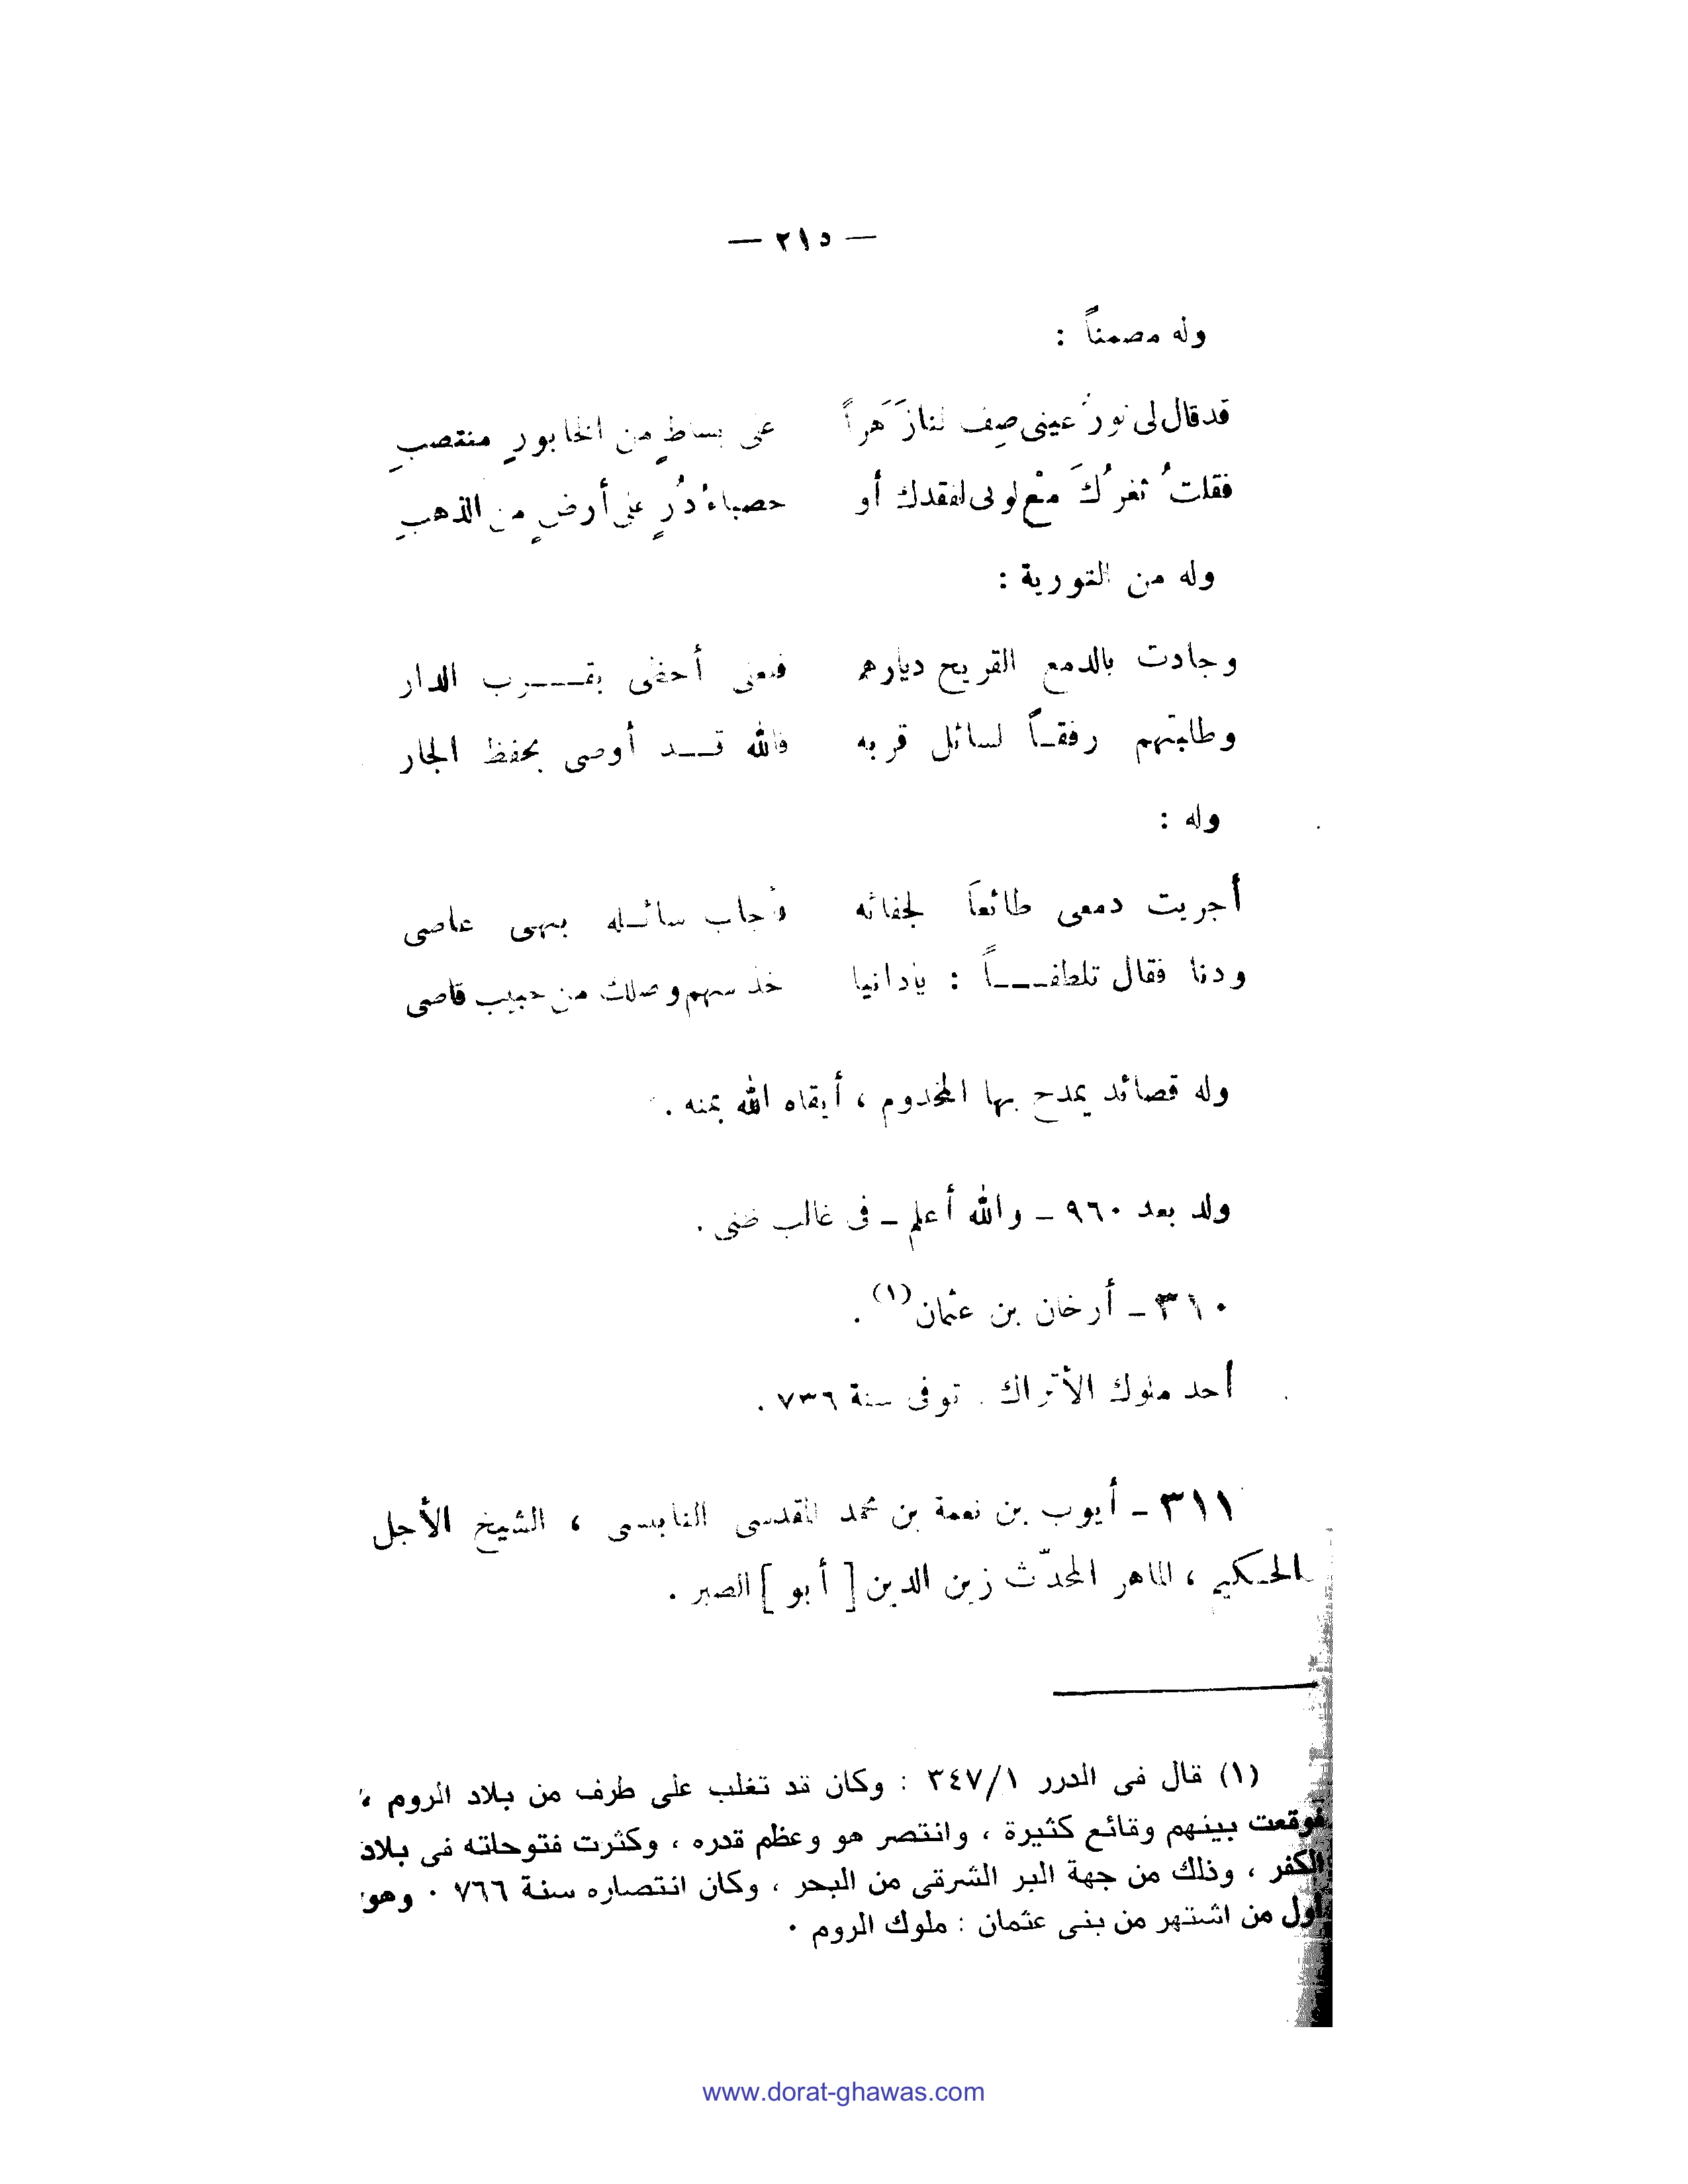 — ٢١٥ —
وله مصمناً :
قد قال لى نورُ عينى صِف لنا زَهَراً على بساطٍ من الخابورِ منتصبِ
فقلتُ ثغرُكَ معْ لولى لفقدك أو حصباءُ دُرٍ على أرضٍ من الذهبِ
وله من التورية :
وجادت بالدمع القريح ديارهم فعلى أحظى بقـــرب الدار
وطالبتهم رفقـاً لسائل قربه فالله قــد أوصى بحفظ الجار
وله :
أجريت دمعى طائعاً لجفائه فأجاب سائـله بهى عاصى
ودنا فقال تلطفــاً : يادانيا خذ سهم وصلك من حبيب قاصى
وله قصائد يمدح بها المخدوم ، أبقاه الله بمنه .
ولد بعد ٩٦٠ – والله أعلم – فى غالب ظنى .
٣١٠ – أرخان بن عثمان (١) .
أحد ملوك الأتراك . توفى سنة ٧٣٦ .
٣١١ – أيوب بن نعمة بن محمد المقدسى النابلسى ، الشيخ الأجل
الحـكيم ، الماهر المحدّث زين الدين [ أبو ] الصبر .
(١) قال فى الدرر ٣٤٧/١ : وكان قد تغلب على طرف من بلاد الروم ،
فوقعت بينهم وقائع كثيرة ، وانتصر هو وعظم قدره ، وكثرت فتوحاته فى بلاد
الكفر ، وذلك من جهة البر الشرقى من البحر ، وكان انتصاره سنة ٧٦٦ . وهو
أول من اشتهر من بنى عثمان : ملوك الروم .
www.dorat-ghawas.com